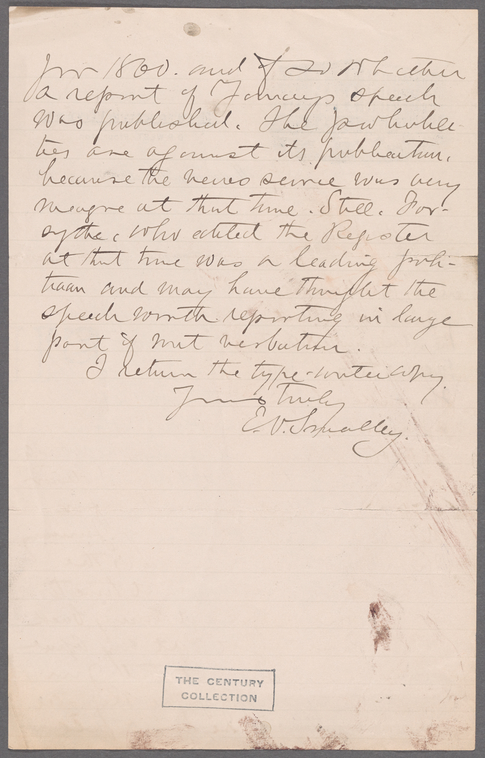 for 1860. and if so whether
a report of Yanceys speech
was published. The probabili-
ties are against its publication,
because the news service was very
meagre at that time. Still, For-
sythe, who edited the Register
at that time was a leading poli-
tician and may have thought the
speech worth reporting in large
part if not verbatim.
I return the type-writer copy.
Yours truly
E.V. Smalley.
THE CENTURY
COLLECTION